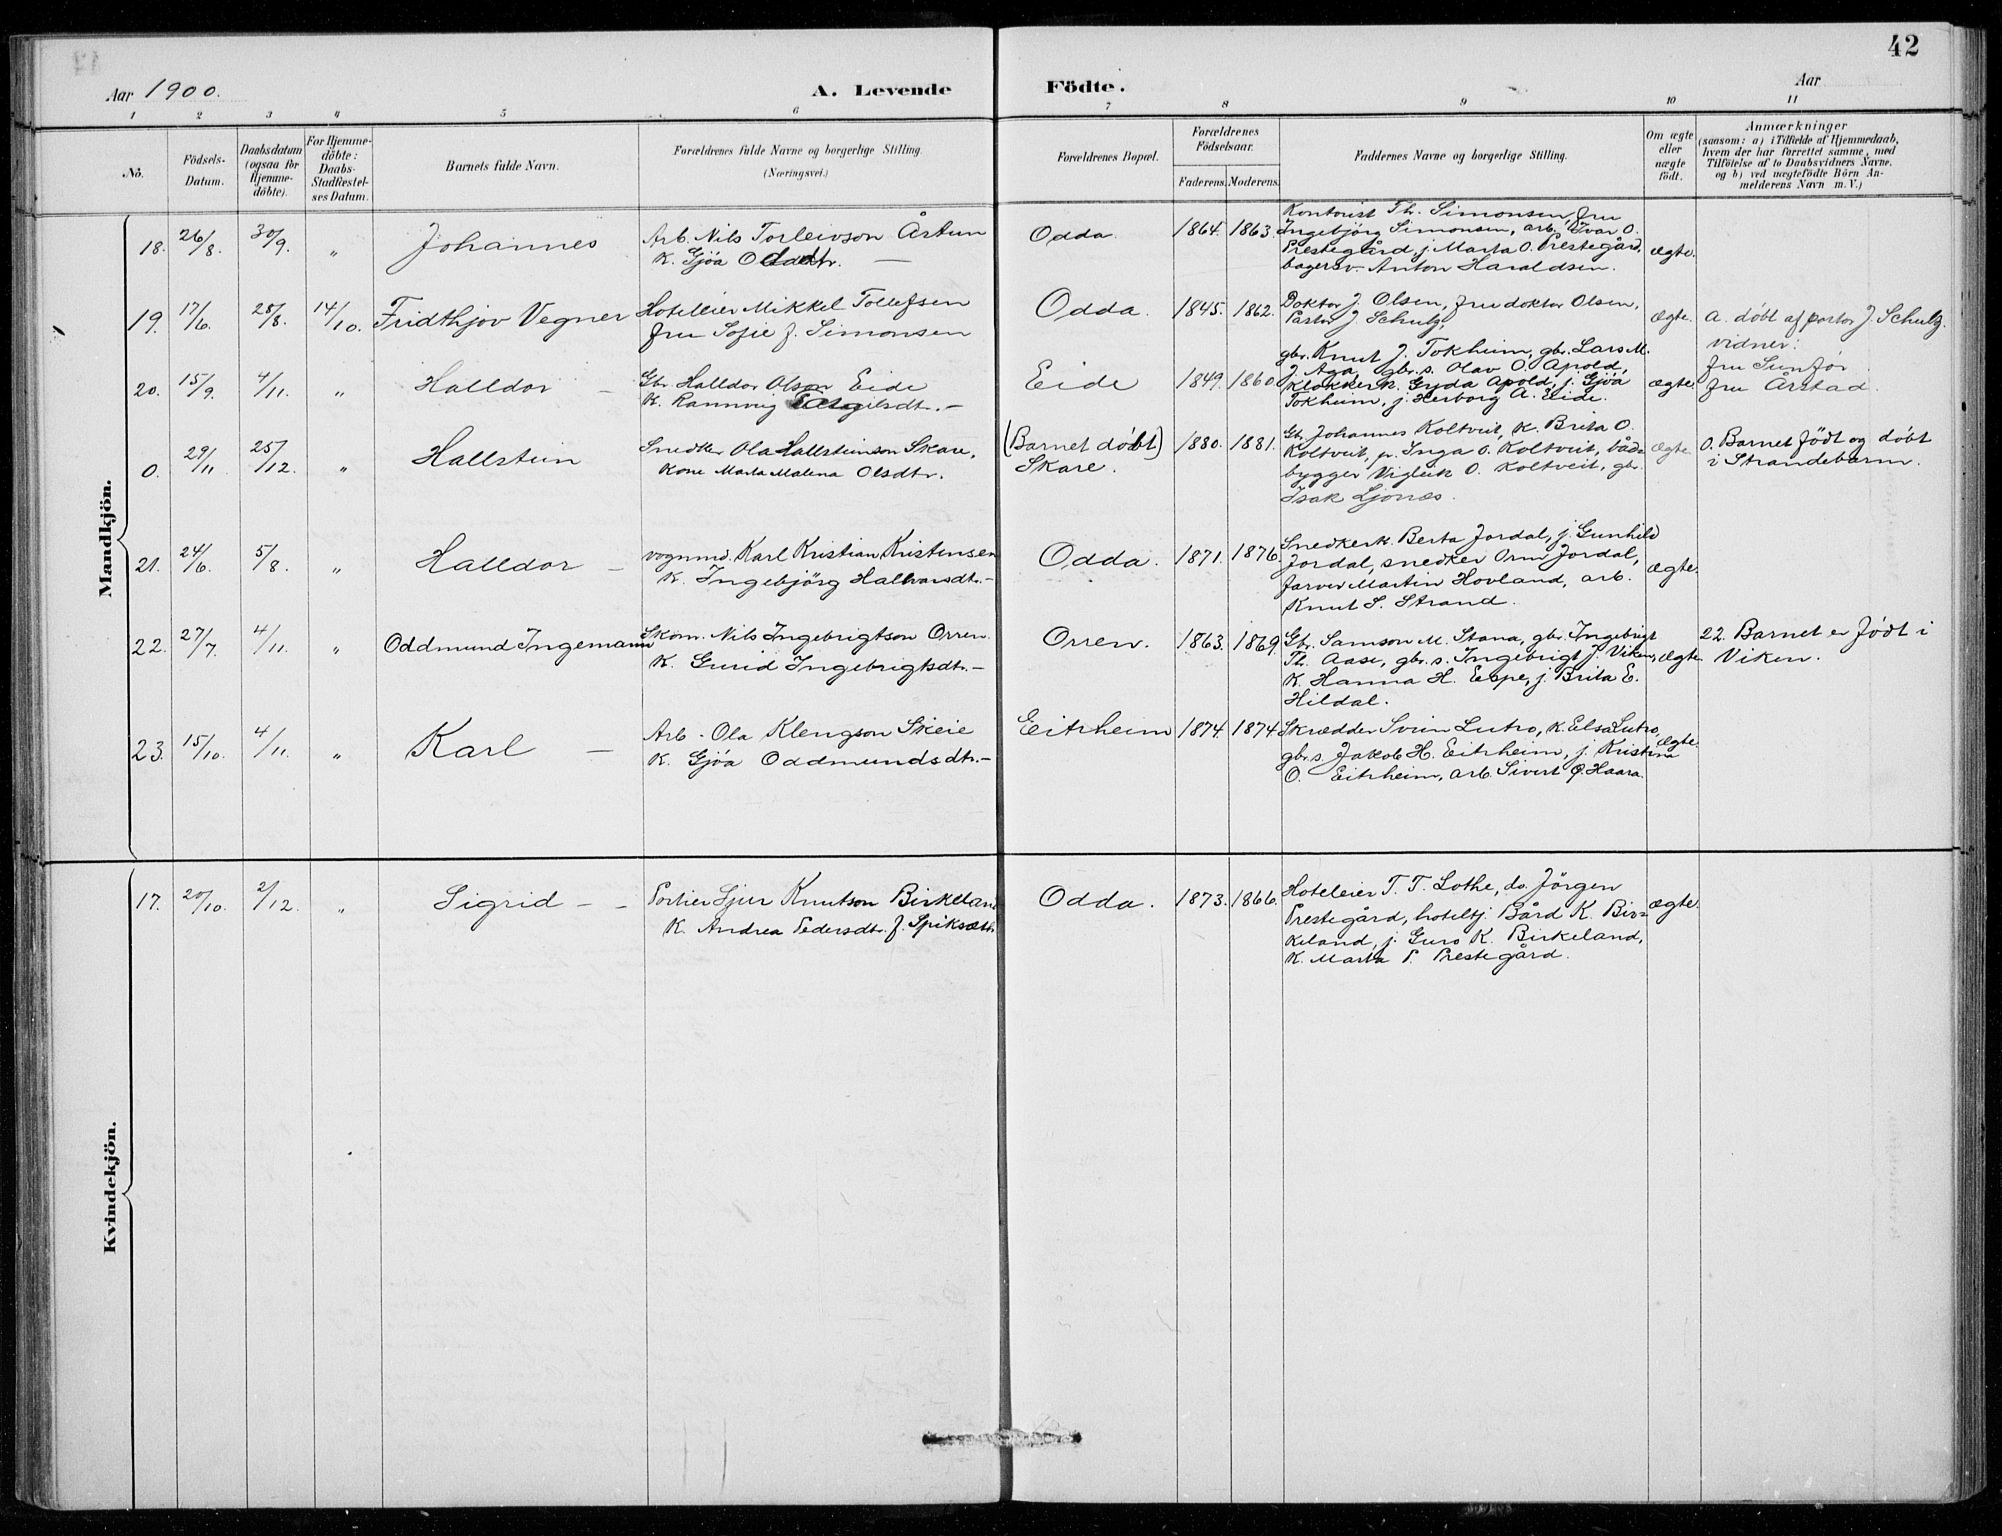 42
Aar 1900.
A. Levende Födte.
Aar
1 2 3 4 5 6 7 8 9 10 11
No.
Födsels-
Datum.
Daabsdatum
(ogsaa for
Hjemme-
döbte).
For Hjemme-
döbte:
Daabs-
Stadfæstel-
ses Datum.
Barnets fulde Navn.
Forældrenes fulde Navne og borgerlige Stilling.
(Næringsvei.)
Forældrenes Bopæl.
Forældrenes
Födselsaar.
Faderens. Moderens.
Faddernes Navne og borgerlige Stilling.
Om ægte
eller
uægte
födt.
Anmærkninger
(saasom: a) i Tilfælde af Hjemmedaab,
hvem der har forrettet samme, med
Tilföielse af to Daabsvidners Navne,
og b) ved uægtefödte Börn An-
melderens Navn m. V.)
Mandkjön.
18. 26/8. 30/9. " Johannes
Arb. Nils Torleivson Årtun
K. Gjøa Oddsdtr. —
Odda. 1864. 1863.
Kontorist Th. Simonsen, fru
Ingebjörg Simonsen, arb. Ivar O.
Prestegård, j. Marta O. Prestegård,
bagersv. Anton Haraldsen.
ægte.
19. 17/6. 28/8. 14/10. Fridthjov Vegner
Hoteleier Mikkel Tollefsen
fru Sofie f. Simonsen
Odda. 1845. 1862.
Doktor J. Olsen, fru doktor Olsen,
Pastor J. Schulz,
ægte.
a. døbt af pastor J. Schulz.
vidner:
fru Sunfør
fru Årstad.
20. 15/9. 4/11. " Halldor —
Gbr. Halldor Olson Eide
K. Rannvig
Eide 1849. 1860
gbr. Knut J. Tokheim, gbr. Lars M.
J. Aga, gbr. s. Olav O. Apold,
Klokker k. Gyda Apold, j. Gjøa
Tokheim, j. Herborg A. Eide.
ægte.
0. 29/11. 25/12. " Hallstein
Snedker Ola Hallsteinson Skare,
Kone Marta Malena Olsdtr.
(Barnet døbt)
Skare.
1880. 1881.
Gb. Johannes Koltveit, k. Brita O.
Koltveit, p. Inga O. Koltveit, båd-
bygger Vigleik O. Koltveit, gbr.
Isak Ljones.
ægte.
0. Barnet født og døbt
i Strandebarm.
21. 24/6. 5/8. " Halldor —
vognmd. Karl Kristian Kristensen
K. Ingebjörg Halvarsdtr. —
Odda. 1871. 1876.
Snedkerk. Berta Jordal, j. Gunhild
Jordal, snedker Orm Jordal,
farver Martin Hovland, arb.
Knut S. Strand.
ægte.
22. 27/7. 4/11. " Oddmund Ingemann
Skom. Nils Ingebrigtson Orren
K. Gurid Ingebrigtsdtr. —
Orren. 1863. 1869.
Gbr. Samson M. Stana, gbr. Ingebrigt
Th. Aase, gbr. s. Ingebrigt J. Viken,
K. Hanna H. Espe, j. Brita E.
Hildal.
ægte.
22. Barnet er født i
Viken.
23. 15/10. 4/11. " Karl —
Arb. Ola Klengson Skeie
K. Gjøa Oddmundsdtr. —
Eitrheim 1874 1874
Skrædder Svein Lutro, k. Elsa Lutro,
gbr. s. Jakob H. Eitrheim, j. Kristina
O. Eitrheim, arb. Sivert Haara.
ægte.
Kvindekjön.
17. 20/10. 2/12. " Sigrid — —
Portier Sjur Knutson Birkeland
K. Andrea Pedersdtr. f. Spiksæt
Odda. 1873. 1866.
Hoteleier T. T. Lothe, do. Jörgen
Prestegård, hoteltj. Bård K. Bir-
keland, j. Guro K. Birkeland,
K. Marta P. Prestegård.
ægte.